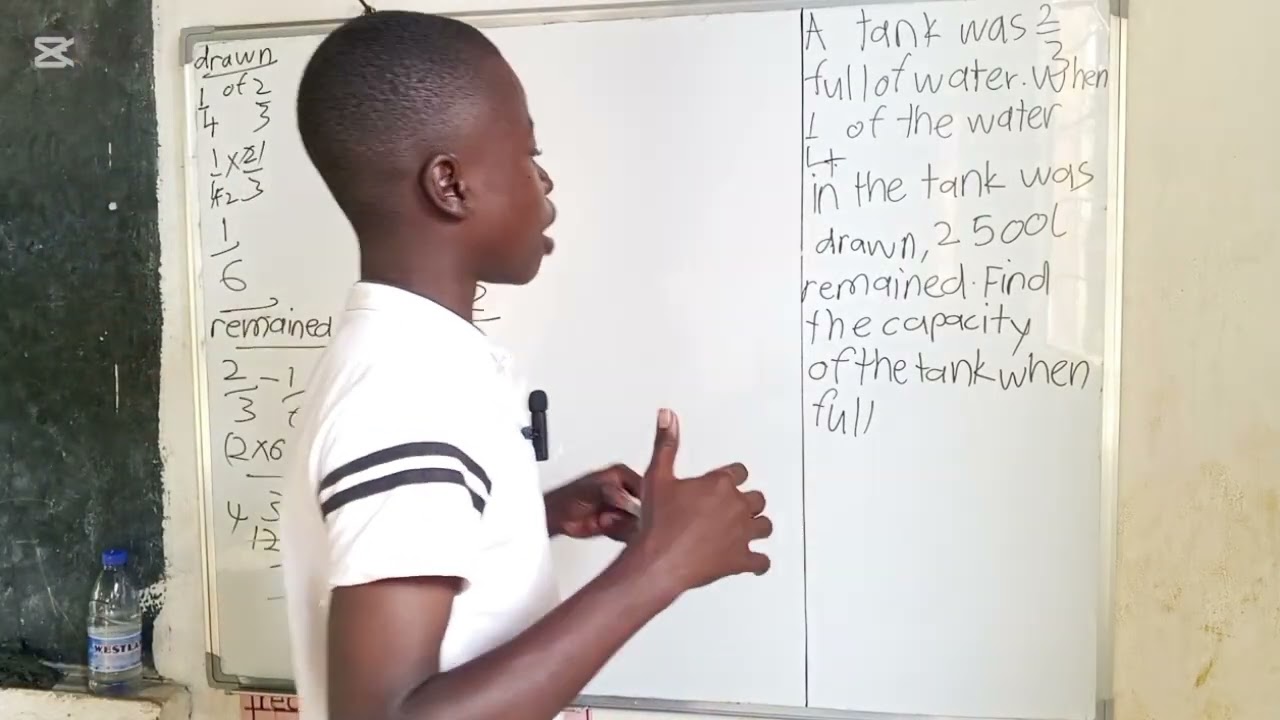 drawn
1/4 of 2/3
1/4 x 2/3
1/6
remained
2/3 - 1/
(2x6
12
2
A tank was 2/3
full of water. When
1/4 of the water
in the tank was
drawn, 2500l
remained. Find
the capacity
of the tank when
full
WESTLA